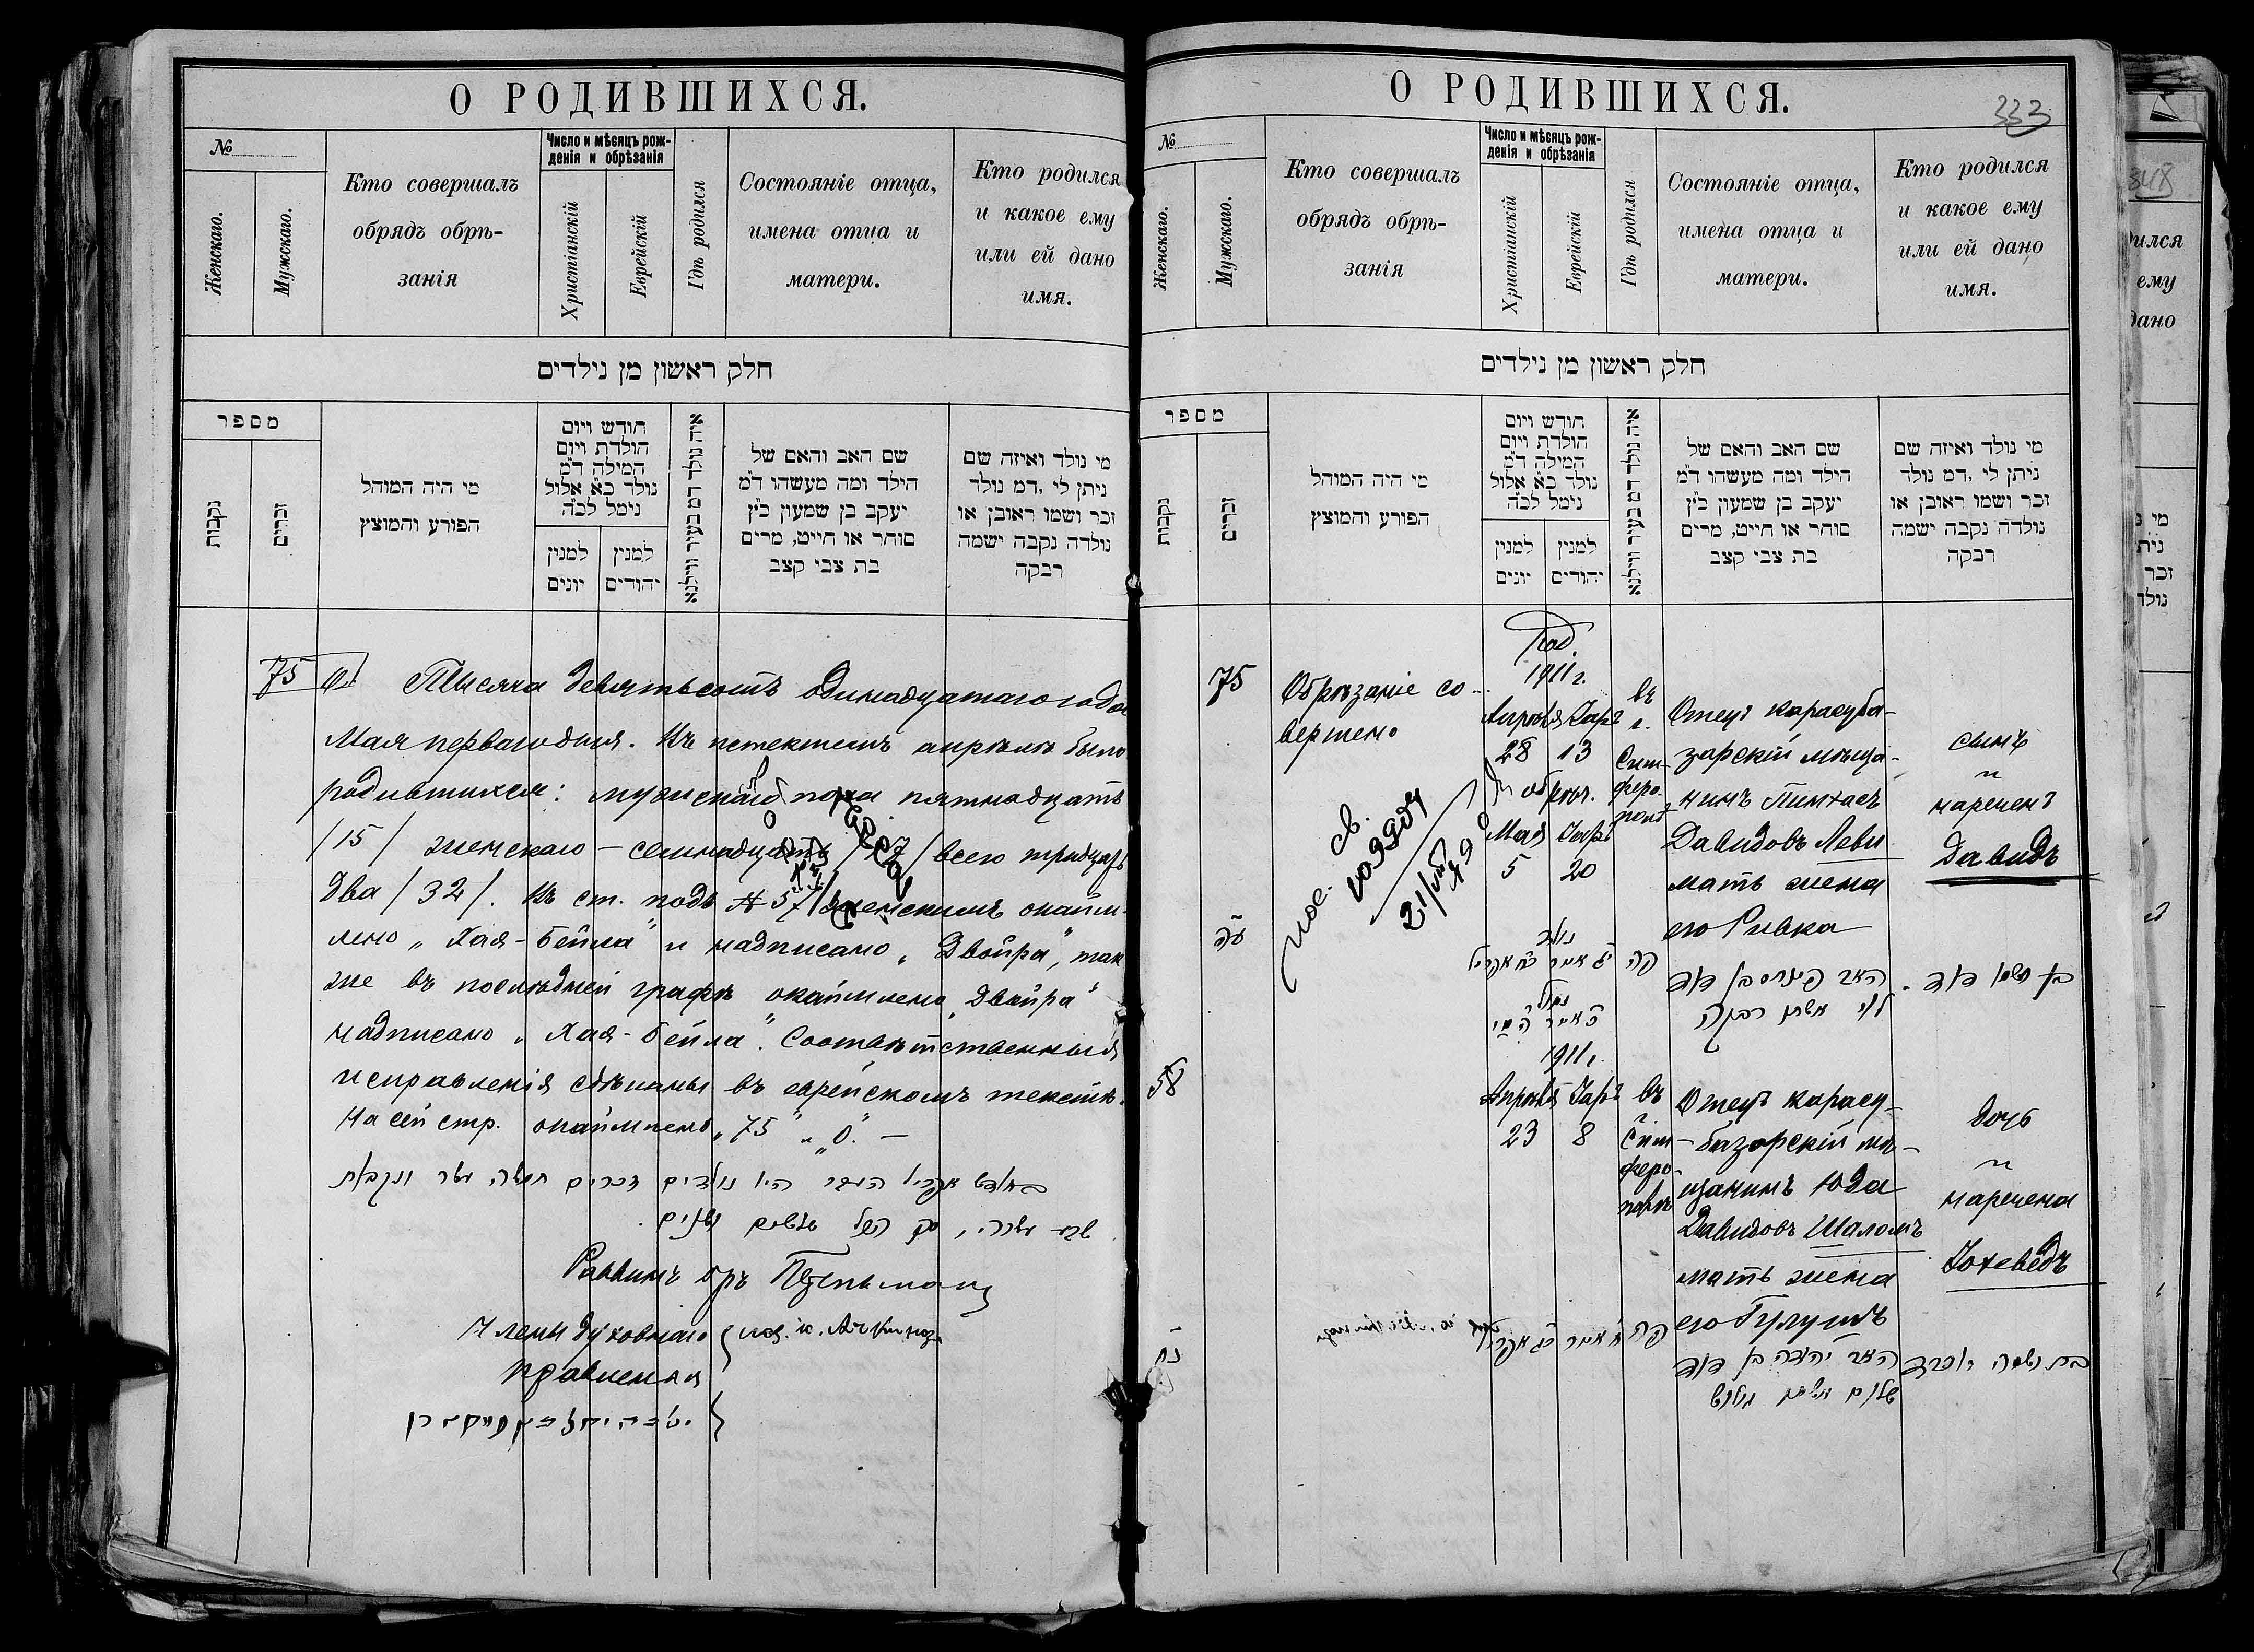 О РОДИВШИХСЯ.
№
Женскаго.
Мужскаго.
Кто совершалъ
обрядъ обрѣ-
занія
Число и мѣсяцъ рож-
денія и обрѣзанія
Христіанскій
Еврейскій
Гдѣ родился
Состояніе отца,
имена отца и
матери.
Кто родился
и какое ему
или ей дано
имя.
חלק ראשון מן נילדים
מספר
נקבות
זכרים
מי היה המוהל
הפורע והמוצץ
חודש ויום
הולדת ויום
המילה ד״מ
נולד כ״א אלול
נימל לכ״ה
למנין
יונים
למנין
יהודים
איה נולד דמ בעיר ווילנא
שם האב והאם של
הילד ומה מעשהו ד״מ
יעקב בן שמעון כ״ץ
סוחר או חייט, מרים
בת צבי קצב
מי נולד ואיזה שם
ניתן לי ,דמ נולד
זכר ושמו ראובן או
נולדה נקבה ישמה
רבקה
75
Тысяча девятьсотъ одинадцатаго года
Мая перваго дня. Въ истекшемъ апрѣлѣ было
родившихся: мужскаго пола пятнадцать
/15/ женскаго – семнадцать /17/ всего тридцать
два /32/. Въ ст. подъ № 57 женскимъ окайм-
лено „Хая-Бейла" и надписано „Двойра", так
же въ послѣдней графѣ окаймлено „Двойра"
надписано „Хая-Бейла". Соотвѣтственныя
исправленія сдѣланы въ еврейскомъ текстѣ.
На сей стр. окаймлено „75" „О." –
בחודש אפריל היו נולדים זכרים חמשה עשר ונקבות
שבע עשרה, סך הכל שלשים ושנים.
Раввинъ
Члены духовнаго
правленія
О РОДИВШИХСЯ.
333
№
Женскаго.
Мужскаго.
Кто совершалъ
обрядъ обрѣ-
занія
Число и мѣсяцъ рож-
денія и обрѣзанія
Христіанскій
Еврейскій
Гдѣ родился
Состояніе отца,
имена отца и
матери.
Кто родился
и какое ему
или ей дано
имя.
חלק ראשון מן נילדים
מספר
נקבות
זכרים
מי היה המוהל
הפורע והמוצץ
חודש ויום
הולדת ויום
המילה ד״מ
נולד כ״א אלול
נימל לכ״ה
למנין
יונים
למנין
יהודים
איה נולד דמ בעיר ווילנא
שם האב והאם של
הילד ומה מעשהו ד״מ
יעקב בן שמעון כ״ץ
סוחר או חייט, מרים
בת צבי קצב
מי נולד ואיזה שם
ניתן לי ,דמ נולד
זכר ושמו ראובן או
נולדה נקבה ישמה
רבקה
75
Обрѣзаніе со-
вершено
Род.
1911 г.
Апрѣля Іаръ
28 13
обрѣз.
Мая Іаръ
5 20
въ
г.
Сим-
феро-
полѣ
Отецъ карасуба-
зарскій мѣща-
нинъ Пинхасъ
Давидовъ Леви
мать жена
его Ривка
сынъ
и
нареченъ
Давидъ
עה
נולד
יג אייר כח אפריל
נימול
כ אייר ה מאי
פה
האב פינחס בן דוד
לוי אשתו רבקה
בן ושמו דוד.
58
1911 г.
Апрѣля Іаръ
23 8
въ
Сим-
феро-
полѣ
Отецъ карасу-
базарскій мѣ-
щанинъ Юда
Давидовъ Шаломъ
мать жена
его Гулушъ
дочь
и
наречена
Іохеведъ
נח
ח אייר כג אפריל
פה
האב יהודה בן דוד
שלום אשתו גולוש
בת ושמה יוכבד
348